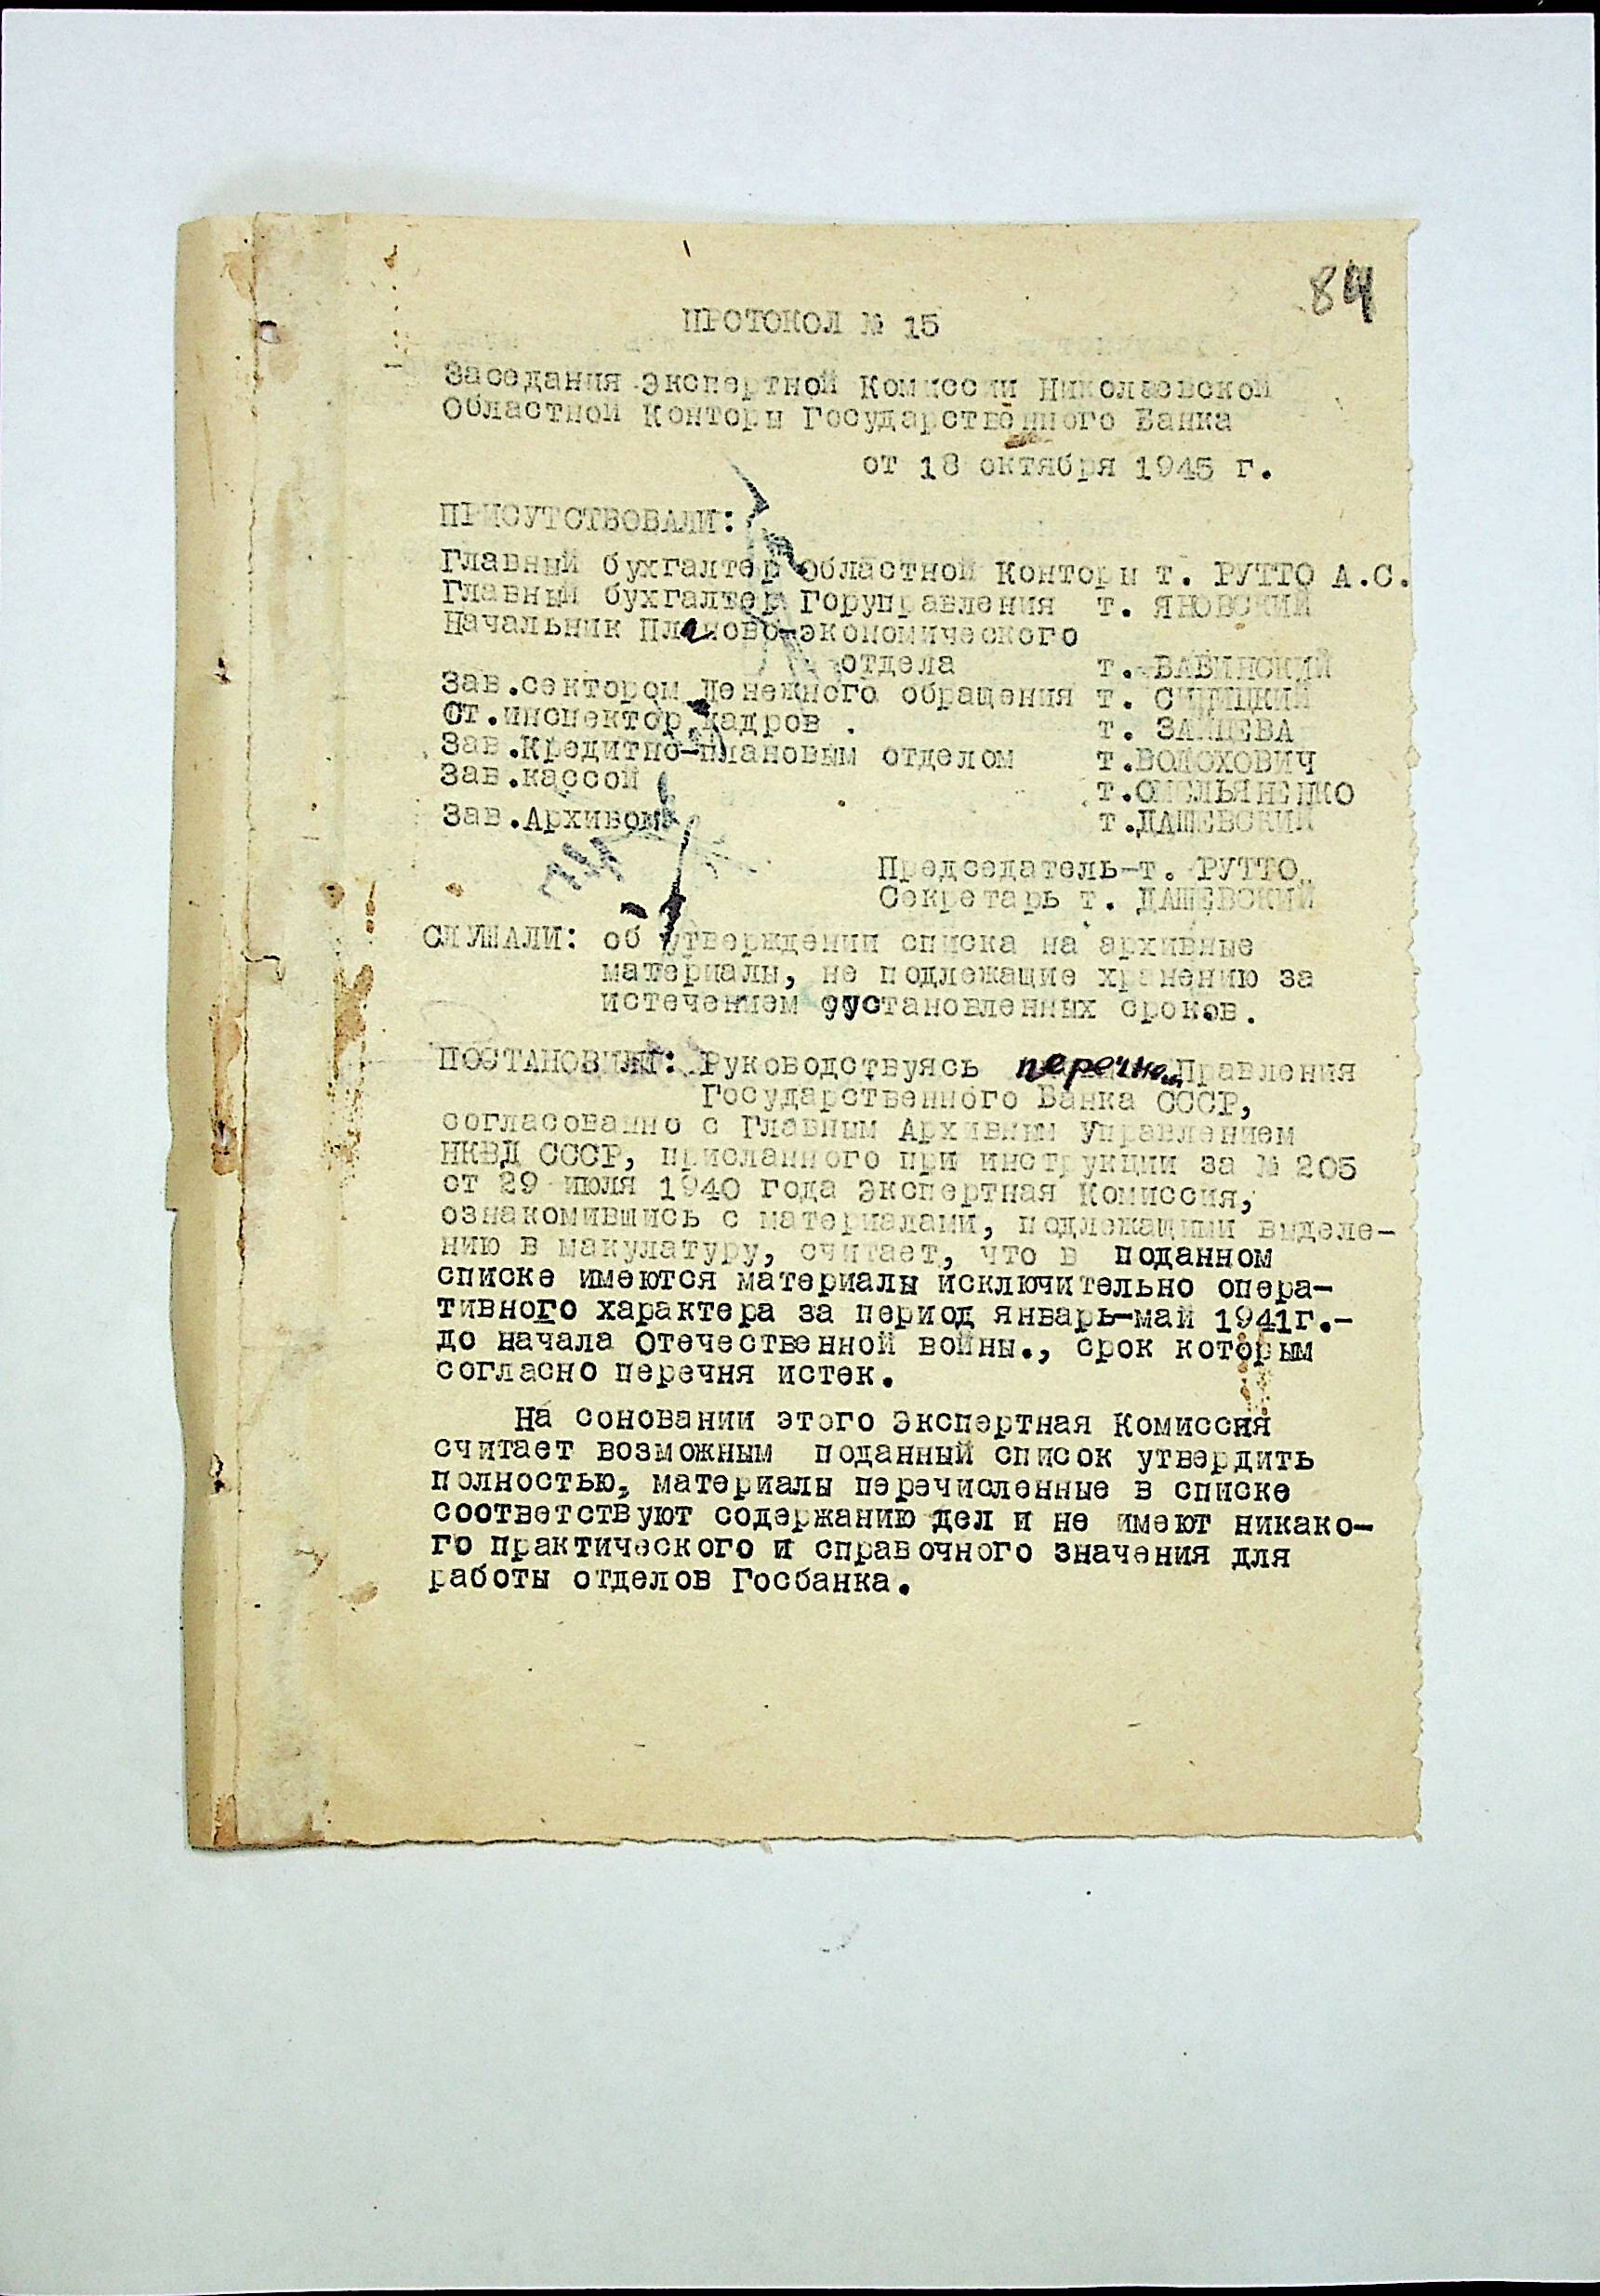 84
ПРОТОКОЛ № 15
Заседания Экспертной Комиссии Николаевской
Областной Конторы Государственного Банка
от 18 октября 1945 г.
ПРИСУТСТВОВАЛИ:
Главный бухгалтер Областной Конторы т. РУТТО А.С.
Главный бухгалтер Горуправления т. ЯНОВСКИЙ
Начальник Планово-экономического
отдела т. БАБИНСКИЙ
Зав.сектором Денежного обращения т.
Ст.инспектор кадров . т. ЗАЙЦЕВА
Зав.Кредитно-плановым отделом т.ВОЛОХОВИЧ
Зав.кассой т.ОМЕЛЬЯНЕНКО
Зав.Архивом т.ДАШЕВСКИЙ
Председатель-т. РУТТО
Секретарь т. ДАШЕВСКИЙ
СЛУШАЛИ: об утверждении списка на архивные
материалы, не подлежащие хранению за
истечением уустановленных сроков.
ПОСТАНОВИЛИ: Руководствуясь перечнем Правления
Государственного Банка СССР,
согласованно с Главным Архивным Управлением
НКВД СССР, присланного при инструкции за № 205
от 29 июля 1940 года Экспертная Комиссия,
ознакомившись с материалами, подлежащими выделе-
нию в макулатуру, считает, что в поданном
списке имеются материалы исключительно опера-
тивного характера за период январь-май 1941г.-
до начала Отечественной войны., срок которым
согласно перечня истек.
На соновании этого Экспертная Комиссия
считает возможным поданный список утвердить
полностью, материалы перечисленные в списке
соответствуют содержанию дел и не имеют никако-
го практического и справочного значения для
работы отделов Госбанка.